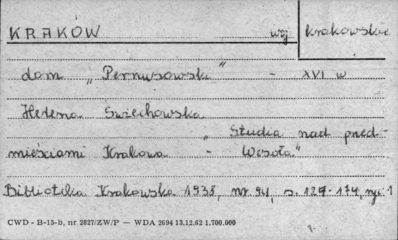 KRAKÓW woj krakowskie
dom "Pernusowski" - XVI w
Helena Świechowska
"Studia nad przed-
mieściami Krakowa - Wesoła"
Biblioteka Krakowska 1938, nr 94, s. 127-174, ryc. 1
CWD - B-15-b, nr. 2827/ZW/P — WDA 2694 13.12.62 1.700.000